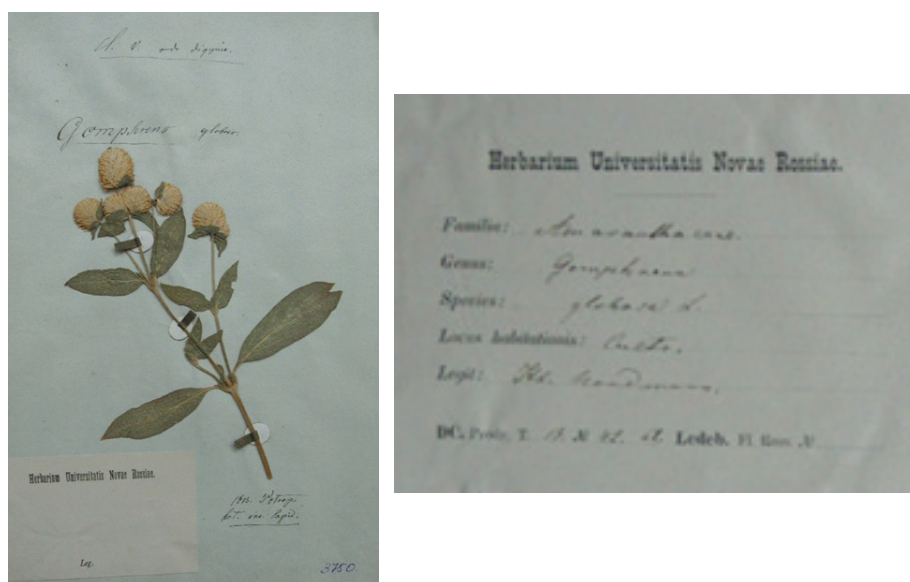 Cl. V. ordo digynia.
Gomphrena globos.
Herbarium Universitatis Novae Rossiae.
Leg.
3750.
Herbarium Universitatis Novae Rossiae.
Familie: Amaranthaceae.
Genus: Gomphraena
Species: globosa L.
Locus habitationis: Culta.
Legit: Hb. Nordmann.
DC. Prodr. T. 13. № 42. Ledeb. Fl. Ross. №